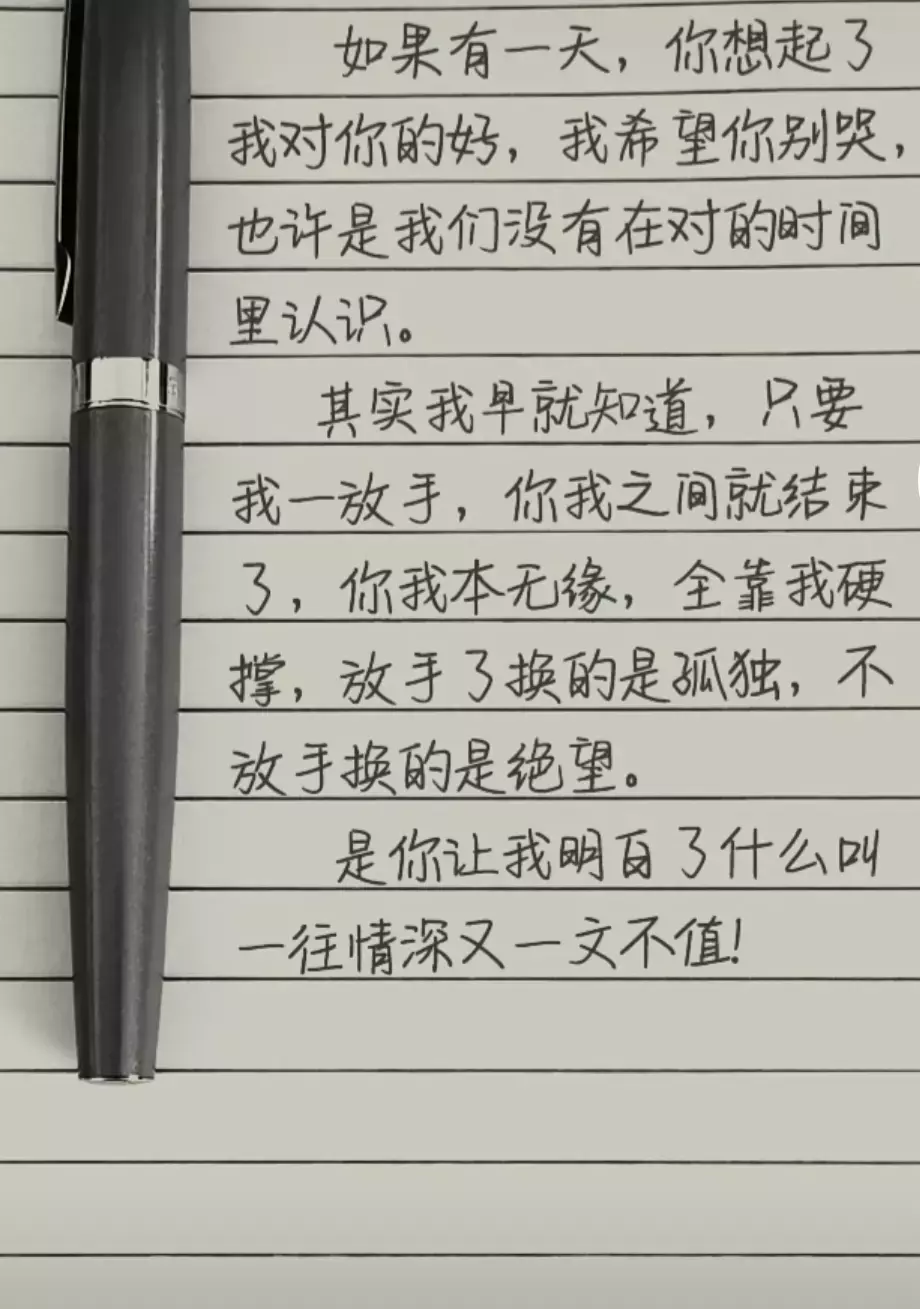 如果有一天，你想起了
我对你的好，我希望你别哭，
也许是我们没有在对的时间
里认识。
其实我早就知道，只要
我一放手，你我之间就结束
了，你我本无缘，全靠我硬
撑，放手了换的是孤独，不
放手换的是绝望。
是你让我明白了什么叫
一往情深又一文不值!